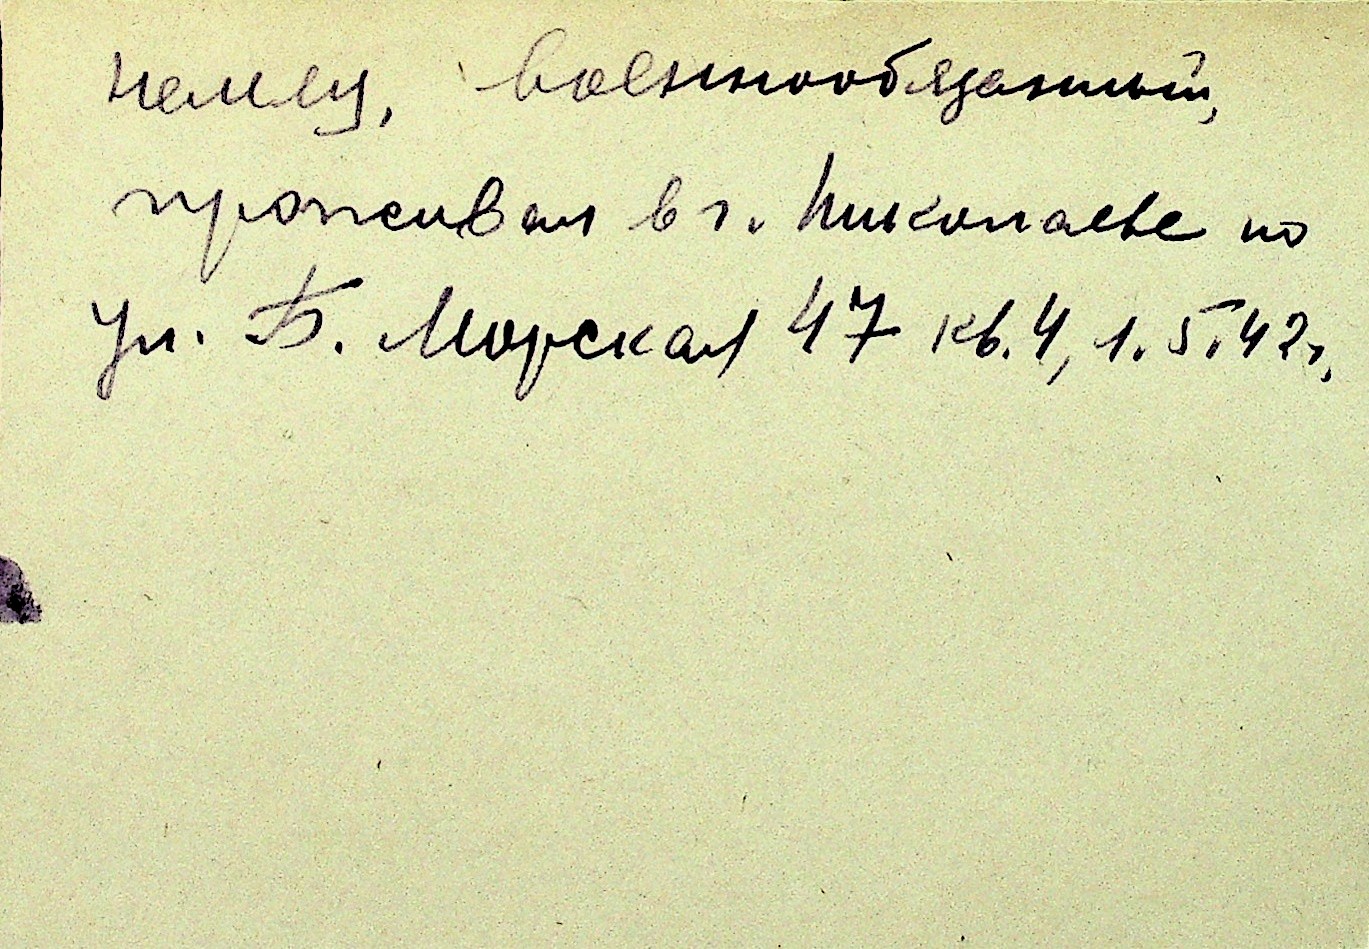 немец, военнообязанный,
проживал в г. Николаеве по
ул. Б. Морская 47 кв. 4, 1.5.42г.